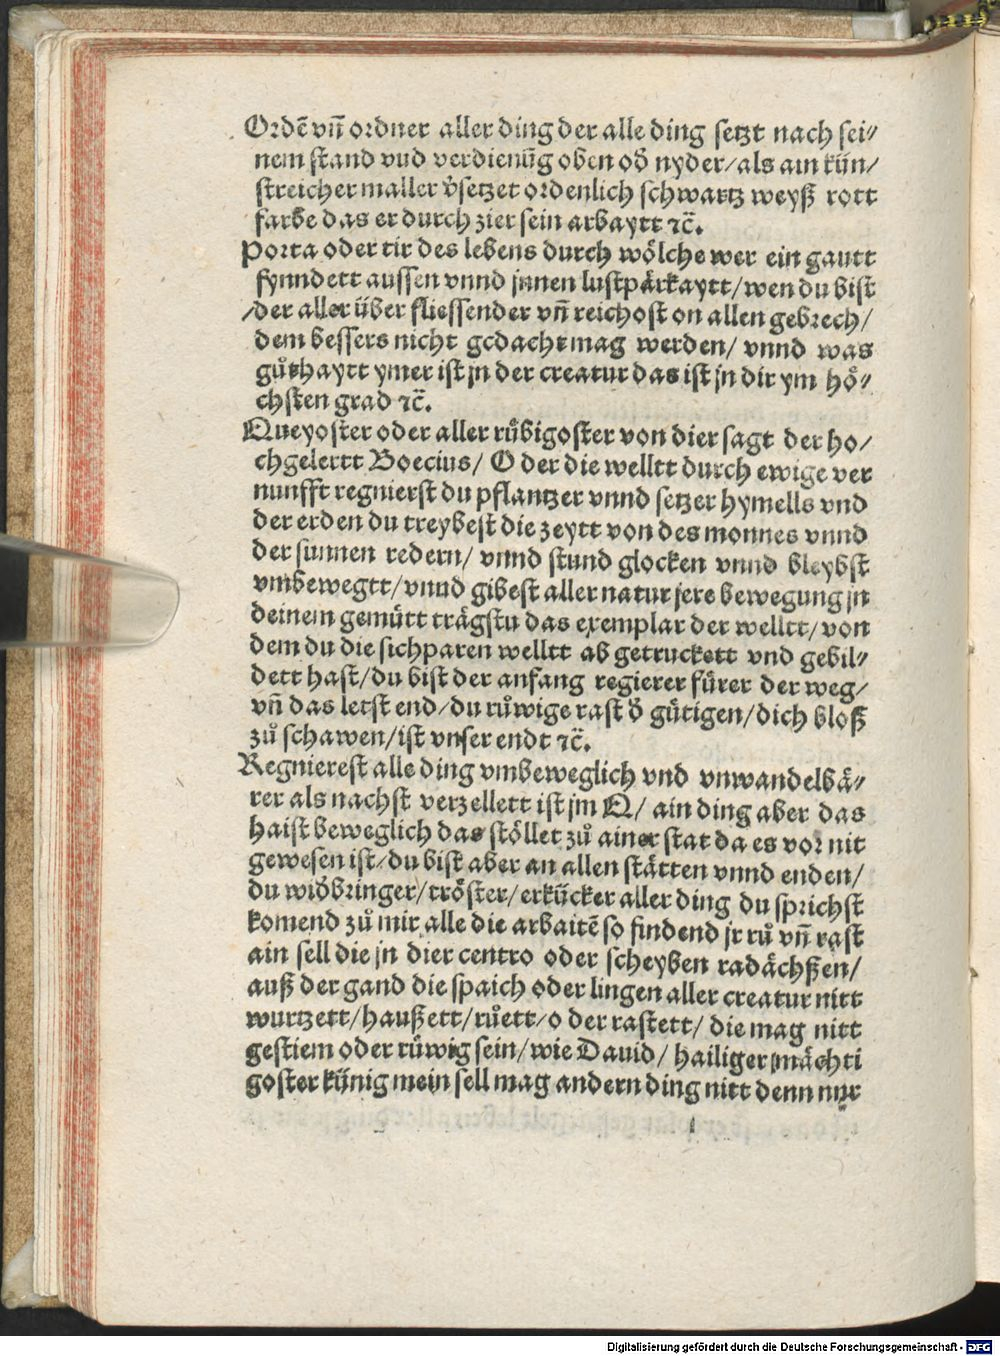 Ordē vn̄ ordner aller ding der alle ding setzt nach sei⸗
nem stand vnd verdienūg oben od̕ nyder/als ain kün/
streicher maller v̕setzet ordenlich schwartz weyß rott
farbe das er durch zier sein arbaytt ⁊c̄.
Porta oder tir des lebens durch wölche wer ein gautt
fynndett aussen vnnd jnnen lustpärkaytt/wen du bist
/der aller über fliessender vn̄ reichost on allen gebrech/
dem bessers nicht gedacht mag werden/ vnnd was
gůthaytt ymer ist jn der creatur das ist jn dir ym hö⸗
chsten grad ⁊c̄.
Queyoster oder aller růbigoster von dier sagt der ho/
chgelertt Boecius/ O der die welltt durch ewige ver
nunfft regnierst du pflantzer vnnd setzer hymells vnd
der erden du treybest die zeytt von des monnes vnnd
der sunnen redern/ vnnd stund glocken vnnd bleybst
vmbewegtt/vnnd gibest aller natur jere bewegung jn
deinem gemütt trägstu das exemplar der welltt/von
dem du die sichparen welltt ab getruckett vnd gebil⸗
dett hast/du bist der anfang regierer fürer der weg/
vn̄ das letst end/du růwige rast d̕ gütigen/dich bloß
zů schawen/ist vnser endt ⁊c̄.
Regnierest alle ding vmbeweglich vnd vnwandelbä⸗
rer als nachst verzellett ist jm Q/ ain ding aber das
haist beweglich das stöllet zů ainer stat da es vor nit
gewesen ist/du bist aber an allen stätten vnnd enden/
du wid̕bringer/tröster/erkücker aller ding du sprichst
komend zů mir alle die arbaitē so findend jr rů vn̄ rast
ain sell die jn dier centro oder scheyben radächßen/
auß der gand die spaich oder lingen aller creatur nitt
wurtzett/haußett/růett/o der rastett/ die mag nitt
gestiem oder růwig sein/wie Dauid/ hailiger mächti
goster künig mein sell mag andern ding nitt denn nur
Digitalisierung gefördert durch die Deutsche Forschungsgemeinschaft - DFG